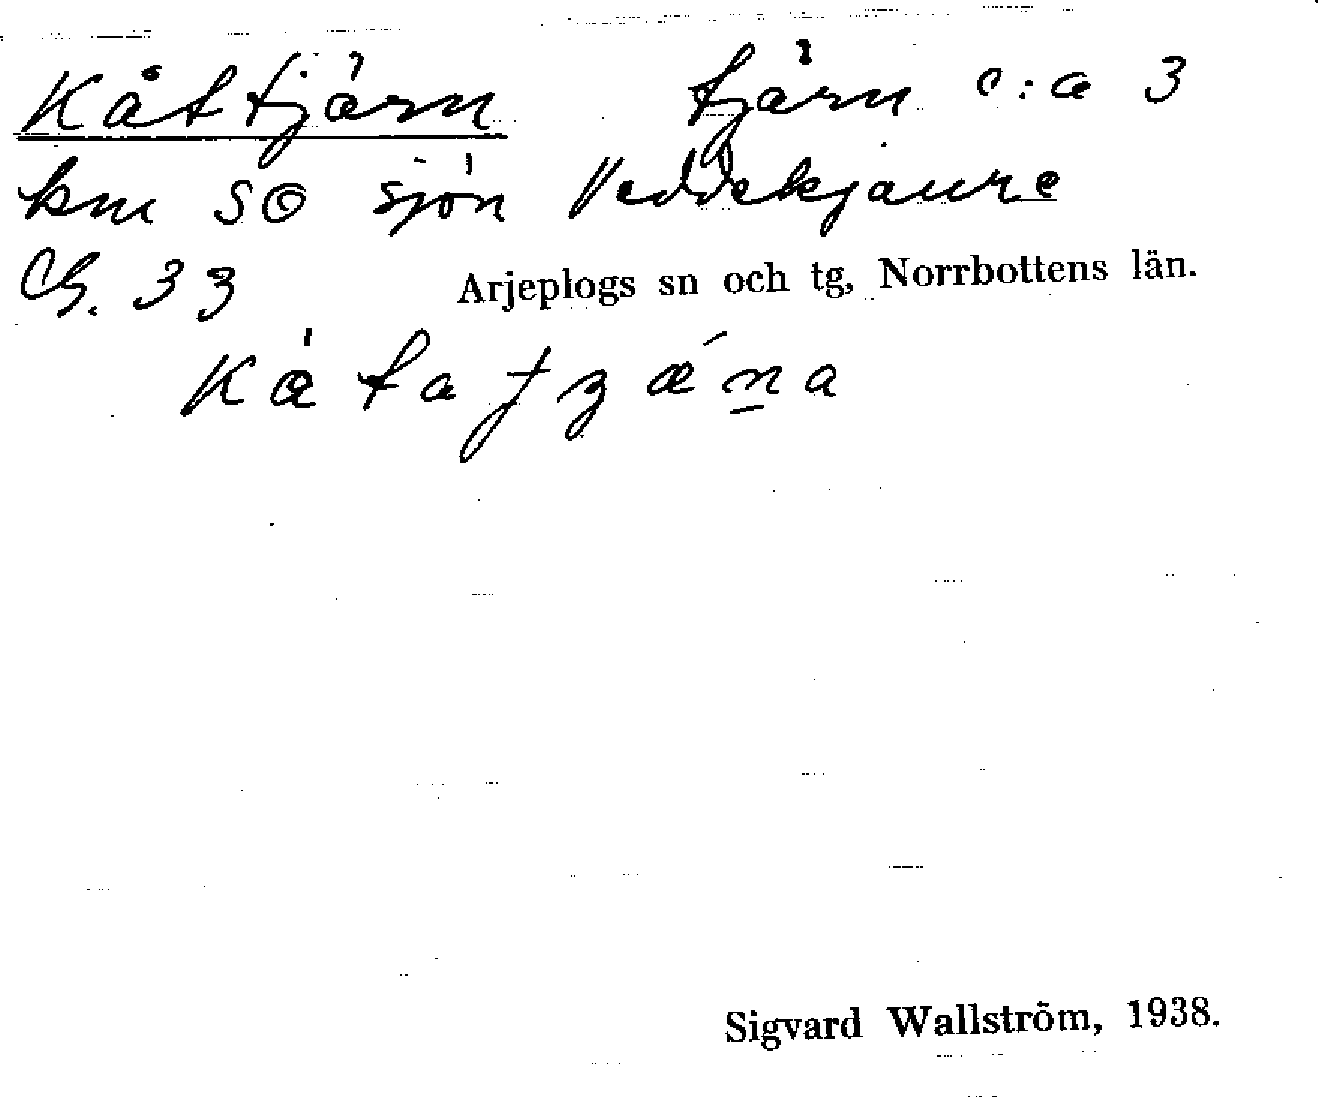 Kåttjärn tjärn c:a 3
km SO sjön Veddekjaure
Arjeplogs sn och tg, Norrbottens län.
Sigvard Wallström, 1938.